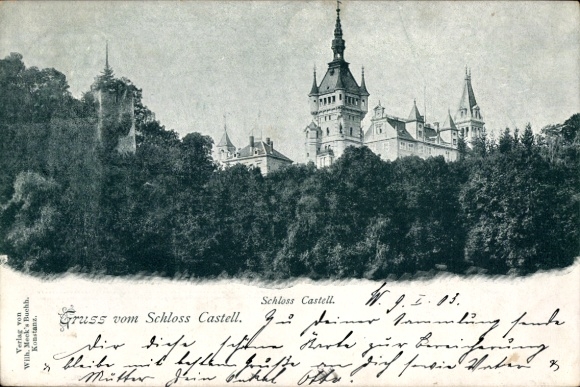 Schloss Castell.
W. 9. I. 03.
Gruss vom Schloss Castell.
Verlag von
Wilh. Meck's Buchh.
Konstanz.
Zu Deiner Sammlung sende
Dir diese schöne Karte zur Bereicherung
bleibe mit besten Grüße an Dich sowie Vater
Mutter Dein Onkel Otto.